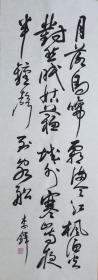 月落烏啼霜滿天江楓漁火
對愁眠姑蘇城外寒山寺夜
半鐘聲到客船
李鐸